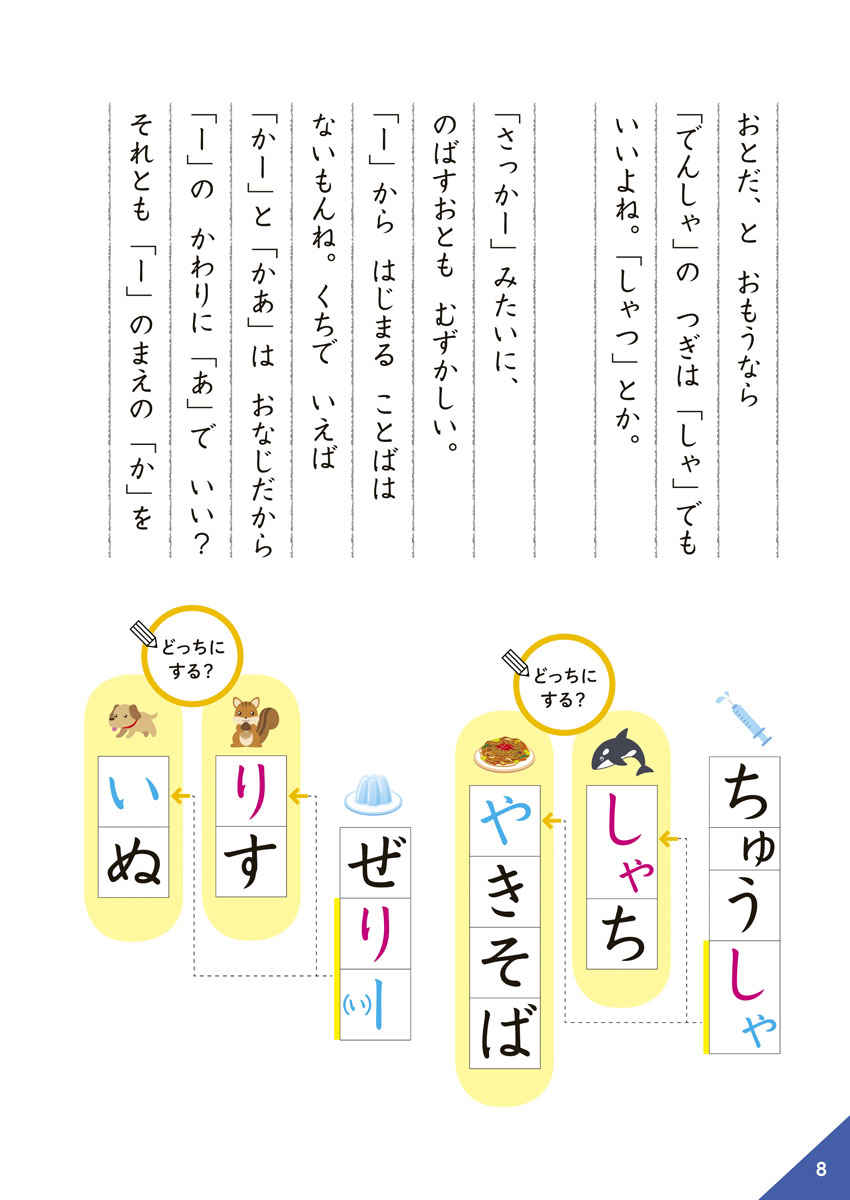 おとだ、と　おもうなら
「でんしゃ」の　つぎは「しゃ」でも
いいよね。「しゃつ」とか。
「さっかー」みたいに、
のばすおとも　むずかしい。
「ー」から　はじまる　ことばは
ないもんね。くちで　いえば
「かー」と「かあ」は　おなじだから
「ー」の　かわりに「あ」で　いい？
それとも「ー」のまえの「か」を
ちゅうしゃ
どっちに
する？
しゃち
やきそば
ぜりー
(い)
どっちに
する？
りす
いぬ
8